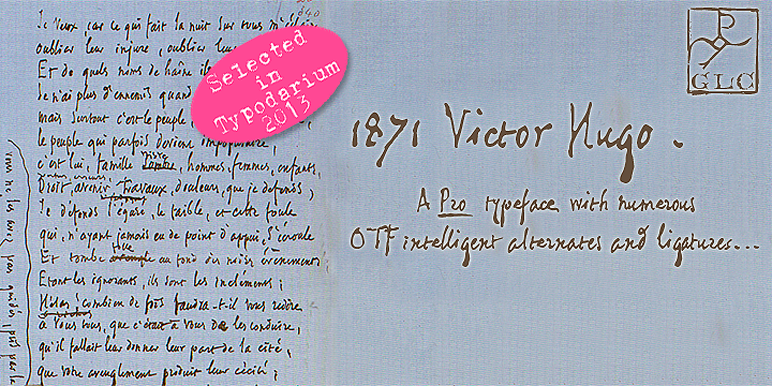 840
Je veux, car ce qui fait la nuit sur tous m'
oublier leur injure, oublier leur
Et de quels noms de haîne ils
Je n'ai plus d'ennemis quand
mais surtout c'est le peuple,
le peuple qui parfois devient impopulaire,
c'est lui, famille triste, hommes, femmes, enfants,
Droit, avenir, travaux, douleurs, que je défends ;
Je défends l'égaré, le faible, et cette foule
qui, n'ayant jamais eu de point d'appui, s'écroule
Et tombe au fond des noirs événements ;
Etant les ignorants, ils sont les incléments ;
Hélas ! combien de fois faudra-t-il vous redire
à vous tous, que c'était à vous de les conduire,
qu'il fallait leur donner leur part de la cité,
que votre aveuglement produit leur cécité ;
Selected
in
Typodarium
2013
GLC
1871 Victor Hugo .
A Pro typeface with numerous
OTF intelligent alternates and ligatures...